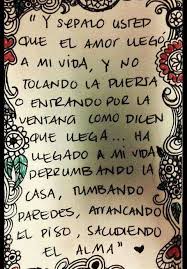 "Y SÉPALO USTED
QUE EL AMOR LLEGÓ
A MI VIDA, Y NO
TOCANDO LA PUERTA
O ENTRANDO POR LA
VENTANA COMO DICEN
QUE LLEGA... HA
LLEGADO A MI VIDA
DERRUMBANDO LA
CASA, TUMBANDO
PAREDES, ARRANCANDO
EL PISO, SACUDIENDO
EL ALMA"